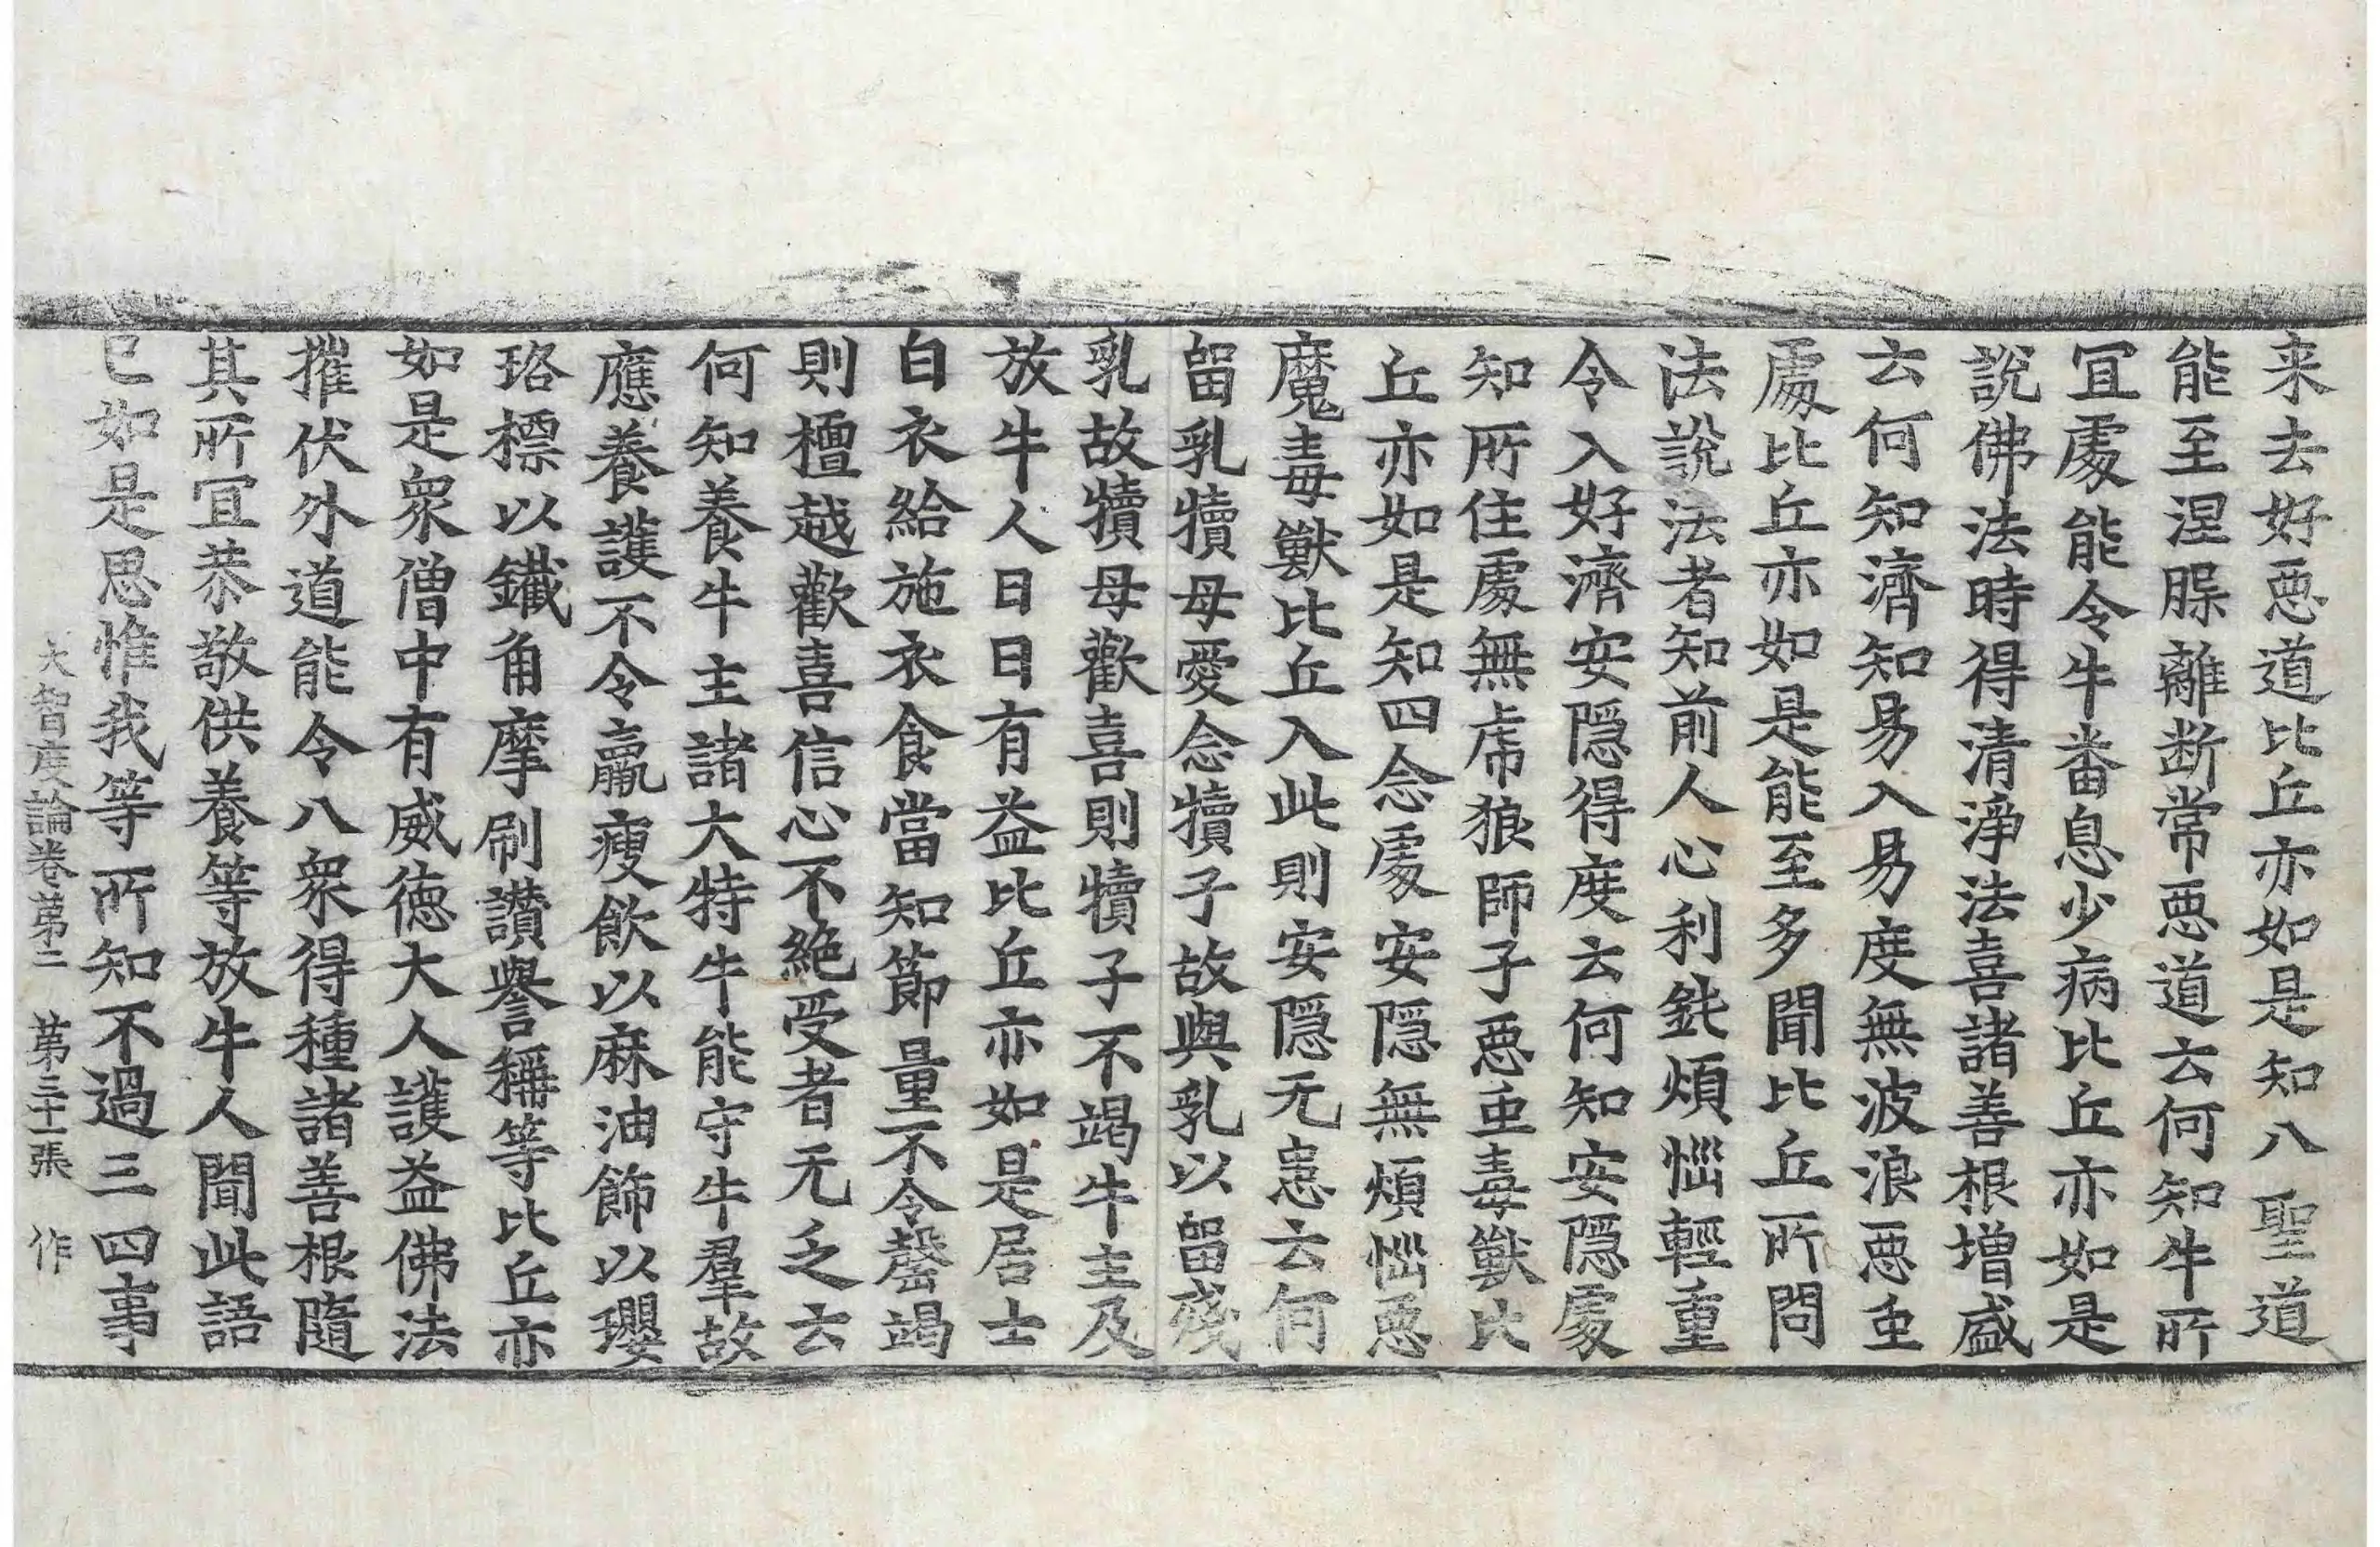 来去好悪道比丘亦如是知八聖道
能至涅膟離断常悪道云何知牛所
宜處能令牛番息少病比丘亦如是
說佛法時得清淨法喜諸善根增盛
云何知濟知易入易度無波浪悪虫
處比丘亦如是能至多聞比丘所問
法說法者知前人心利鈍煩惱輕重
令入好濟安隱得度云何知安隱處
知所住處無虎狼師子悪虫毒獸比
丘亦如是知四念處安隱無煩惱悪
魔毒獸比丘入此則安隱无患云何
留乳犢母愛念犢子故與乳以留殘
乳故犢母歡喜則犢子不竭牛主及
放牛人日日有益比丘亦如是居士
白衣給施衣食當知節量不令罄竭
則檀越歡喜信心不絶受者无乏云
何知養牛主諸大特牛能守牛羣故
應養護不令羸瘦飲以麻油飾以瓔
珞標以鐵角摩刷讃譽稱等比丘亦
如是衆僧中有威德大人護益佛法
摧伏外道能令八衆得種諸善根隨
其所宜恭敬供養等放牛人聞此語
已如是思惟我等所知不過三四事
大智度論卷第二　第三十一張　作